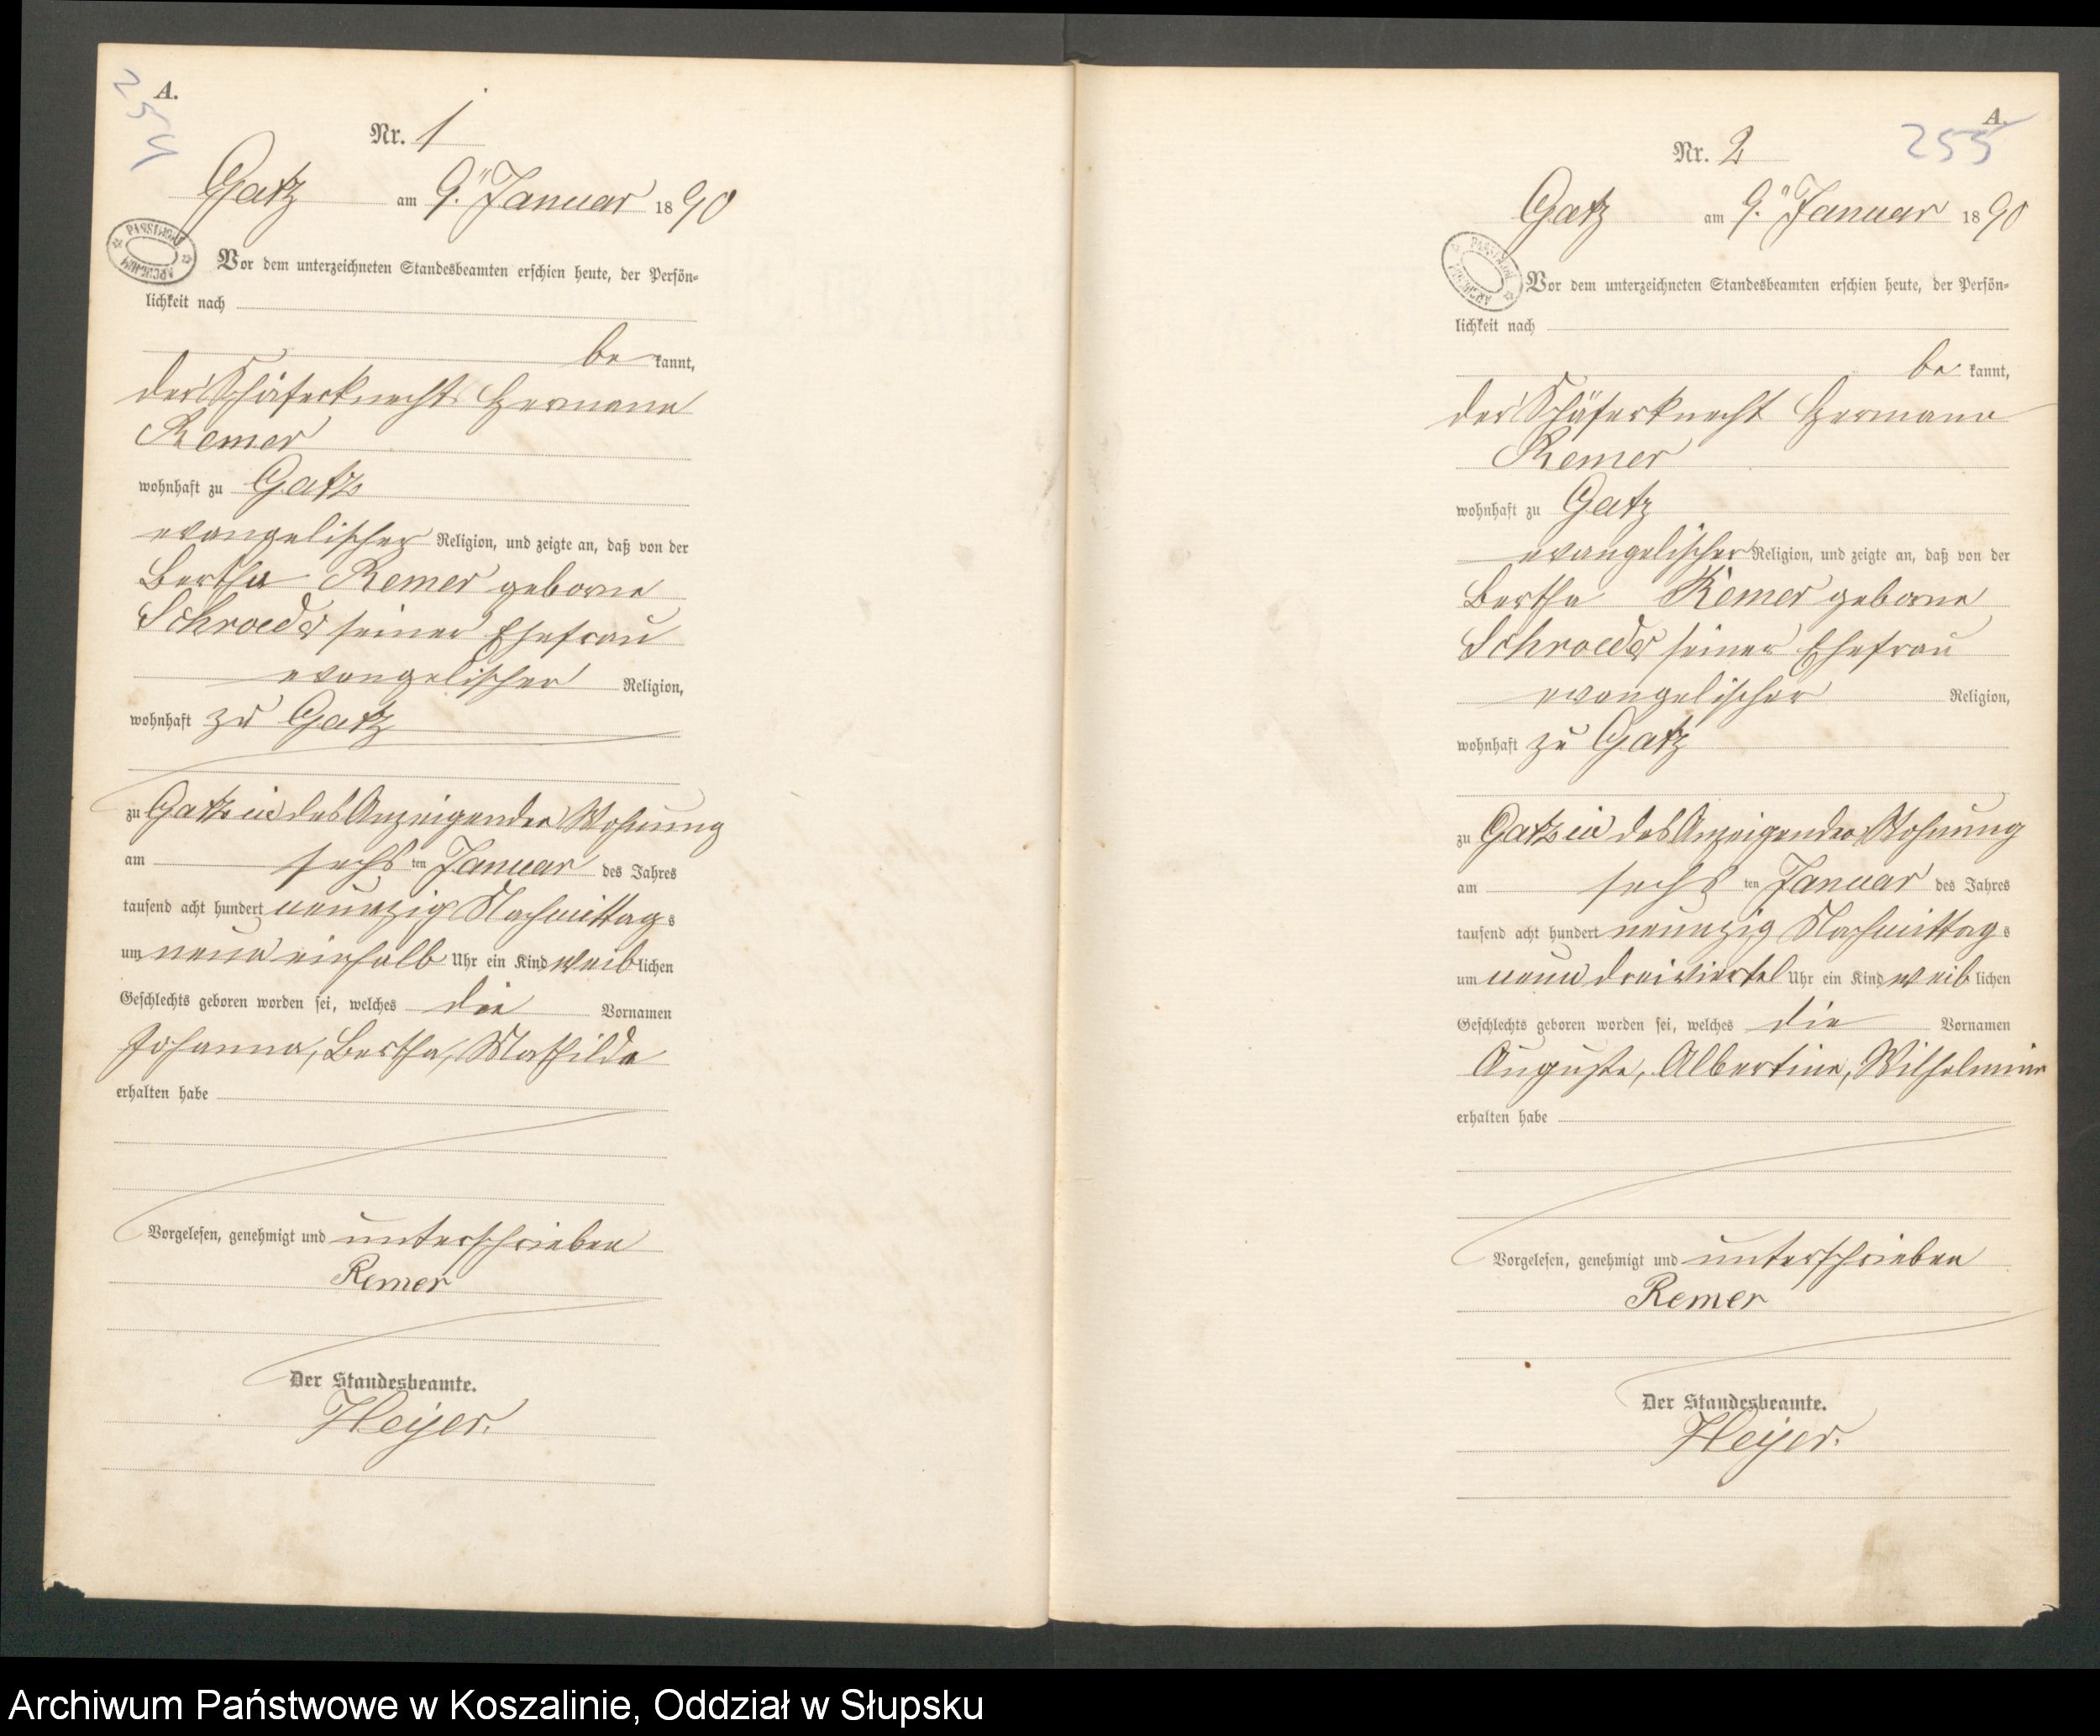 254
A.
Nr. 1
Gatz am 9. Januar 1890
Vor dem unterzeichneten Standesbeamten erschien heute, der Persön-
lichkeit nach
be kannt,
der Schäferknecht Hermann
Remer
wohnhaft zu Gatz
evangelischer Religion, und zeigte an, daß von der
Bertha Remer geborne
Schroeder seiner Ehefrau
evangelischer Religion,
wohnhaft zu Gatz
zu Gatz in des Anzeigenden Wohnung
am sechs ten Januar des Jahres
tausend acht hundert neunzig Nachmittags
um neun einhalb Uhr ein Kind weiblichen
Geschlechts geboren worden sei, welches die Vornamen
Johanna, Bertha, Mathilde
erhalten habe
Vorgelesen, genehmigt und unterschrieben
Remer
Der Standesbeamte.
Heyer.
A.
255
Nr. 2
Gatz am 9. Januar 1890
Vor dem unterzeichneten Standesbeamten erschien heute, der Persön-
lichkeit nach
be kannt,
der Schäferknecht Hermann
Remer
wohnhaft zu Gatz
evangelischer Religion, und zeigte an, daß von der
Bertha Remer geborne
Schroeder seiner Ehefrau
evangelischer Religion,
wohnhaft zu Gatz
zu Gatz in des Anzeigenden Wohnung
am sechs ten Januar des Jahres
tausend acht hundert neunzig Nachmittags
um neun dreiviertel Uhr ein Kind weiblichen
Geschlechts geboren worden sei, welches die Vornamen
Auguste, Albertine, Wilhelmine
erhalten habe
Vorgelesen, genehmigt und unterschrieben
Remer
Der Standesbeamte.
Heyer.
Archiwum Państwowe w Koszalinie, Oddział w Słupsku